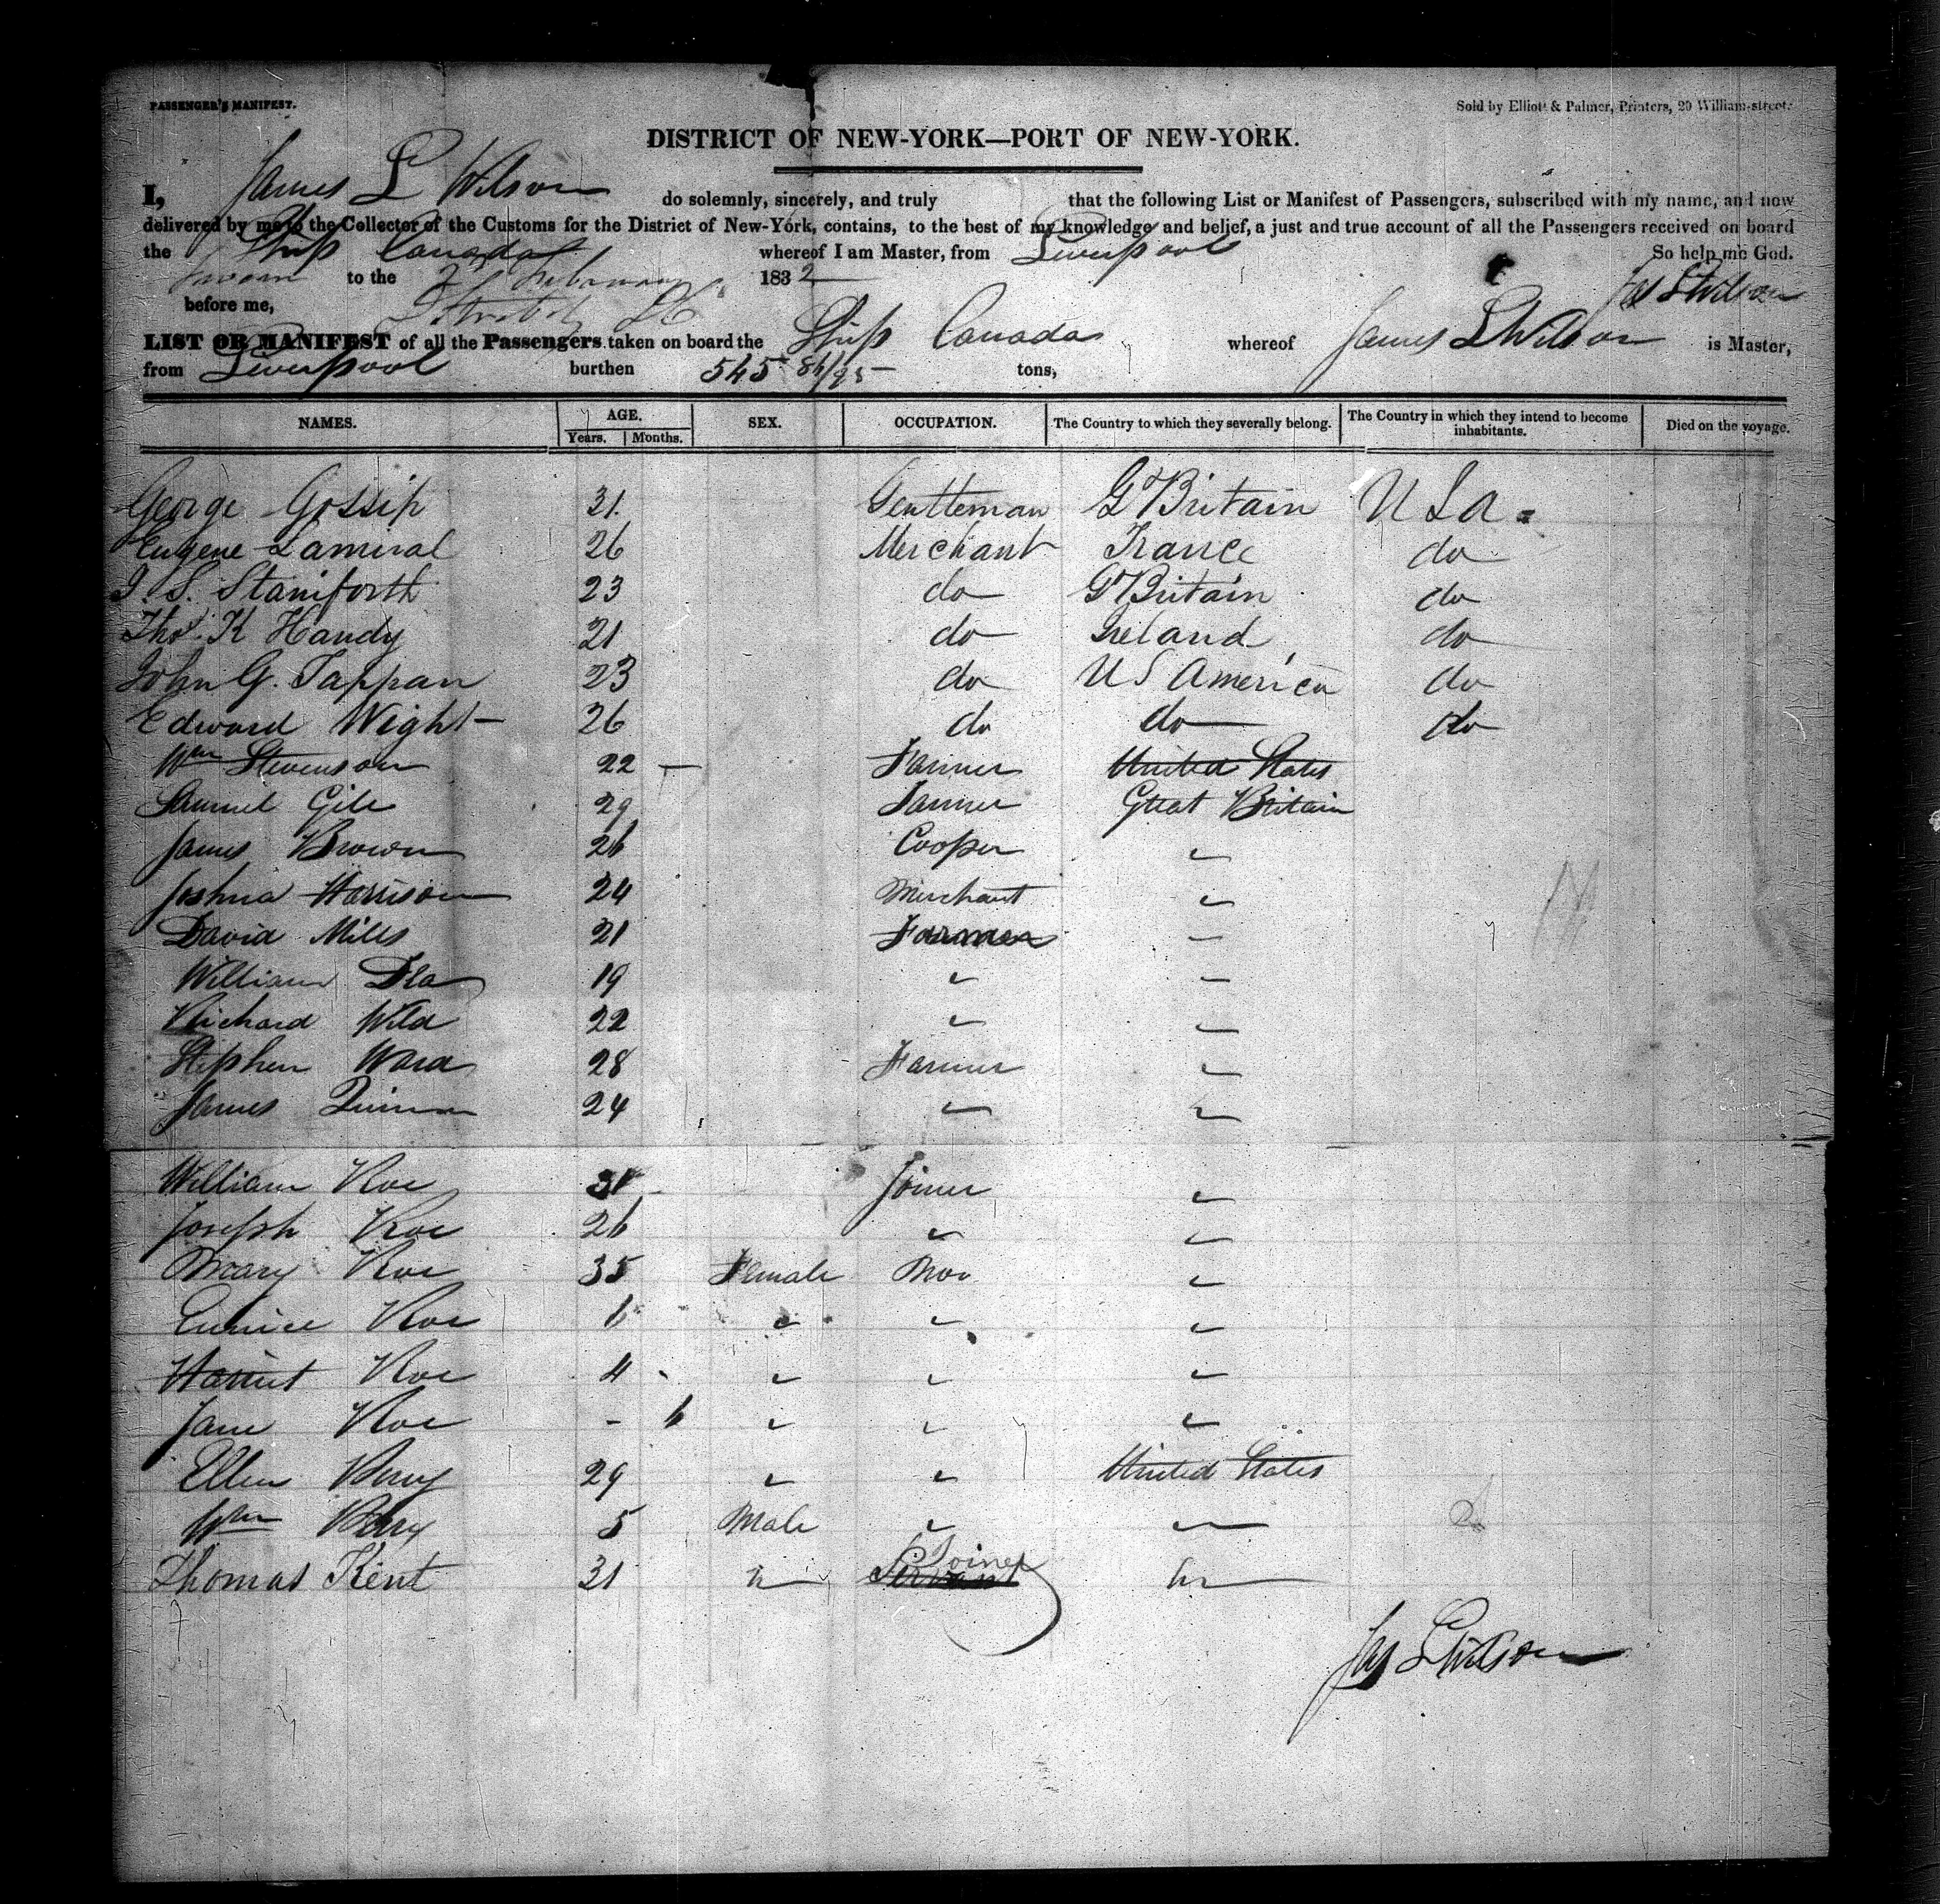 PASSENGER'S MANIFEST.
Sold by Elliott & Palmer, Printers, 20 William-street.
DISTRICT OF NEW-YORK—PORT OF NEW-YORK.
I, James L Wilson do solemnly, sincerely, and truly that the following List or Manifest of Passengers, subscribed with my name, and now
delivered by me to the Collector of the Customs for the District of New-York, contains, to the best of my knowledge and belief, a just and true account of all the Passengers received on board
the Ship Canada whereof I am Master, from Liverpool So help me God.
Sworn to the February 1832 Jas L Wilson
before me,
LIST OR MANIFEST of all the Passengers taken on board the Ship Canada whereof James L Wilson is Master,
from Liverpool burthen 545 86/95 tons,
NAMES. AGE. Years. Months. SEX. OCCUPATION. The Country to which they severally belong. The Country in which they intend to become inhabitants. Died on the voyage.
George Gossip 31. Gentleman Gt Britain U S a.
Eugene Lamiral 26 Merchant France do
J. S. Staniforth 23 do Gt Britain do
Thos K Handy 21 do Ireland do
John G. Tappan 23 do U S America do
Edward Wight 26 do do do
Wm Stevenson 22 — Farmer United States
Samuel Gile 29 Farmer Great Britain
James Brown 26 Cooper "
Joshua Harrison 24 Merchant "
David Mills 21 Farmer "
William 19 " "
Richard Wild 22 " "
Stephen Ward 28 Farmer "
James Quinn 24 " "
William Roe 31 Joiner "
Joseph Roe 26 " "
Mary Roe 35 Female "
Eunice Roe 6 " " "
Harriet Roe 4 " " "
Jane Roe - 6 " " "
Ellen Berry 29 " " United States
Wm Berry 5 Male " "
Thomas Kent 31 " Servant Joiner "
Jas L Wilson